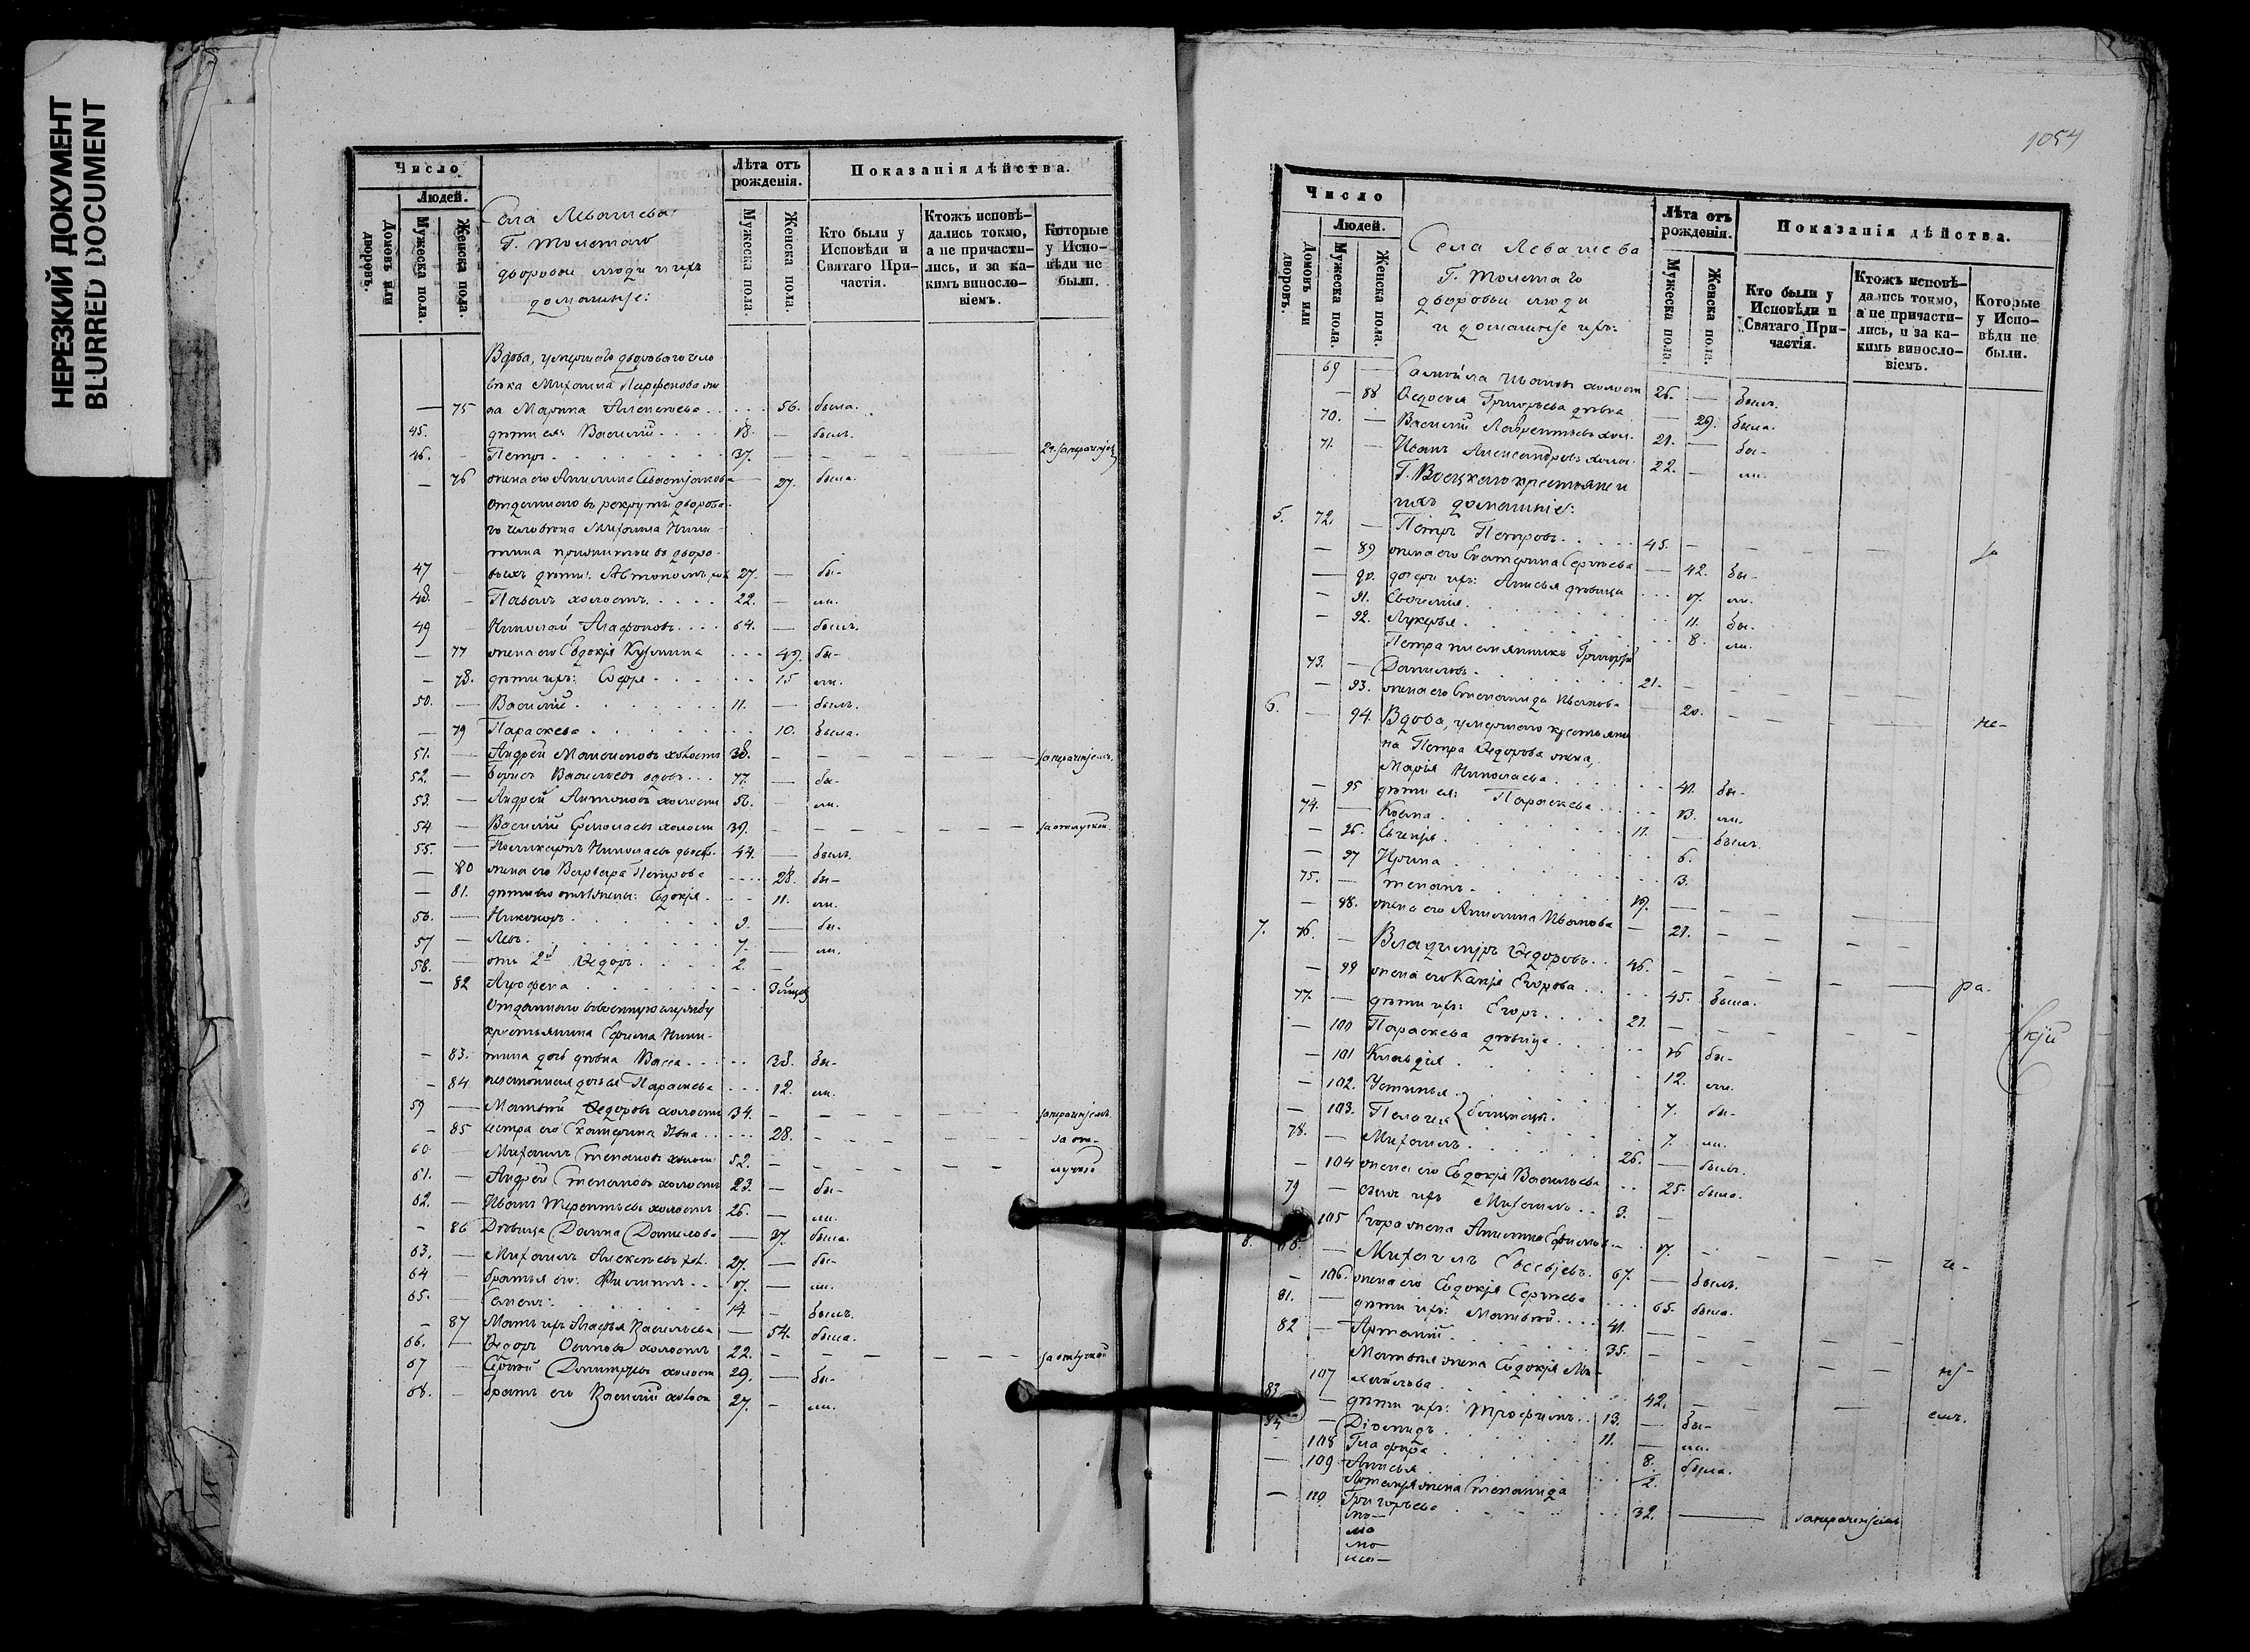 НЕРЕЗКИЙ ДОКУМЕНТ
BLURRED DOCUMENT
Число
Людей.
Домовъ или дворовъ.
Мужеска пола.
Женска пола.
Села Левашева
Г. Толстаго
дворовые люди и ихъ
домашніе:
Лѣта отъ рожденія.
Мужеска пола.
Женска пола.
Показанія дѣйства.
Кто были у Исповѣди и Святаго Причастія.
Ктожъ исповѣдались токмо, а не причастились, и за какимъ винословіемъ.
Которые у Исповѣди не были.
Вдова, умершаго двороваго чело
вѣка Михаила Парфенова же
— 75 на Марина Алексѣева 56. была.
45. дѣти ея: Василій 18. — былъ.
46. Петръ 37. —
— 76 жена его Акилина Севастьянова — 27. была.
Отданнаго въ рекруты дворова-
го человѣка Михаила Ники-
тина принятые въ дворо-
47 выхъ дѣти: Автономъ 27. — бы-
48. Павелъ холостъ 22. — ли.
49 Николай Агафоновъ 64. — былъ.
— 77 жена его Евдокія Кузмина 49. бы-
— 78. дѣти ихъ: Софія 15 ли.
50. — Василій 11. — былъ.
— 79 Параскева 10. была.
51. — Андрей Максимовъ холостъ 38. —
52. — Борисъ Васильевъ вдовъ 77. — бы-
53. — Андрей Антоновъ холостъ 56. — ли.
54 — Василій Ермолаевъ холостъ 39. — за отлучкой.
55. — Поликарпъ Николаевъ 44. — былъ.
— 80 жена его Варвара Петрова 28. бы-
— 81. дѣти Евдокія 11. ли.
56. — Никаноръ 9. — бы-
57 — Левъ 7. — ли.
58. — отъ 2й Ѳедоръ 2. —
— 82 Агрофена
Отданнаго въ военную службу
крестьянина Ефима Ники-
— 83. тина дочь дѣвка Васса 38. бы-
— 84 Параскева 12. ли.
59 — Матвѣй Ѳедоровъ холостъ 34. —
— 85 сестра его Екатерина 28. — за от-
60 Михаилъ Степановъ холостъ 52. — лучкой
61. — Андрей Степановъ холостъ 23. — бы-
62. — Иванъ Терентьевъ холостъ 26. — ли.
— 86 Дѣвица Домна Данилова — 37. была.
63. — Михаилъ Алексѣевъ хол. 27. — бы-
64 — братья его: Филиппъ 17. — ли.
65. — Семенъ 14. — былъ.
— 87 Мать ихъ Агафья Васильева — 54. была.
66. — Ѳедоръ Осиповъ холостъ 22. — за отлучкой
67 — Сергѣй Дмитріевъ холостъ 29. — бы-
68. — братъ его Василій холостъ 27. — ли.
1054
Число
Людей.
Домовъ или дворовъ.
Мужеска пола.
Женска пола.
Села Левашева
Г. Толстаго
дворовые люди
и домашніе ихъ:
Лѣта отъ рожденія.
Мужеска пола.
Женска пола.
Показанія дѣйства.
Кто были у Исповѣди и Святаго Причастія.
Ктожъ исповѣдались токмо, а не причастились, и за какимъ винословіемъ.
Которые у Исповѣди не были.
69 — Самойла Ивановъ холостъ 26. — былъ.
— 88 Ѳедосья Григорьева дѣвка — 29. была.
70. — Василій Лаврентьевъ хол. 21. — бы-
71. — Иванъ Александровъ холос. 22. — ли.
крестьяне и
ихъ домашніе:
5. 72. — Петръ Петровъ 45. — за
— 89 жена его Екатерина Сергѣева — 42. бы-
— 90. дочери ихъ: Анисья дѣвица 17. ли.
— 91. Евгенія 11. бы-
— 92. Лукерья 8. ли.
Петра племянникъ Григорій
73. — Даниловъ 21. —
— 93. жена его Степанида Иванова — 20. — не-
6. — 94. Вдова, умершаго крестьяни
на Петра Ѳедорова жена,
Марія Николаева 41. бы-
— 95 дѣти ея: Параскева 13. ли.
74. — Козма 11. — былъ.
— 96. Евгенія 6.
— 97 Ирина 3.
75. — Степанъ 19. —
— 98. жена его Акилина Иванова — 21. —
7. 76. — Владимиръ Ѳедоровъ 46. — ра-
— 99 жена его Капія Егорова 45. была.
77. — дѣти ихъ: Егоръ 21. —
— 100 Параскева дѣвица 16 бы-
— 101 Клавдія 12. ли.
— 102. Устинья 7. бы-
— 103. Пелагея близнецы 7. ли.
78. — Михаилъ 26. — былъ.
— 104 жена его Евдокія Васильева 25. была.
79 — сынъ ихъ Михаилъ 3. —
105 Егора жена Акилина Ефимова — 17. —
8. — Михаилъ Евсевьевъ 67. — былъ.
— 106. жена его Евдокія Сергѣева 65. была.
81. — дѣти ихъ: Матвѣй 41. —
82 — Артемій 35. —
Матвѣя жена Евдокія Ми-
107 хайлова 42.
83 — дѣти ихъ: Трофимъ 13. — бы-
84 — Діомидъ 11. — ли.
— 108 Глафира 8. была.
— 109 Анисья 2.
Артемія жена Степанида
— 110 Григорьева 32.